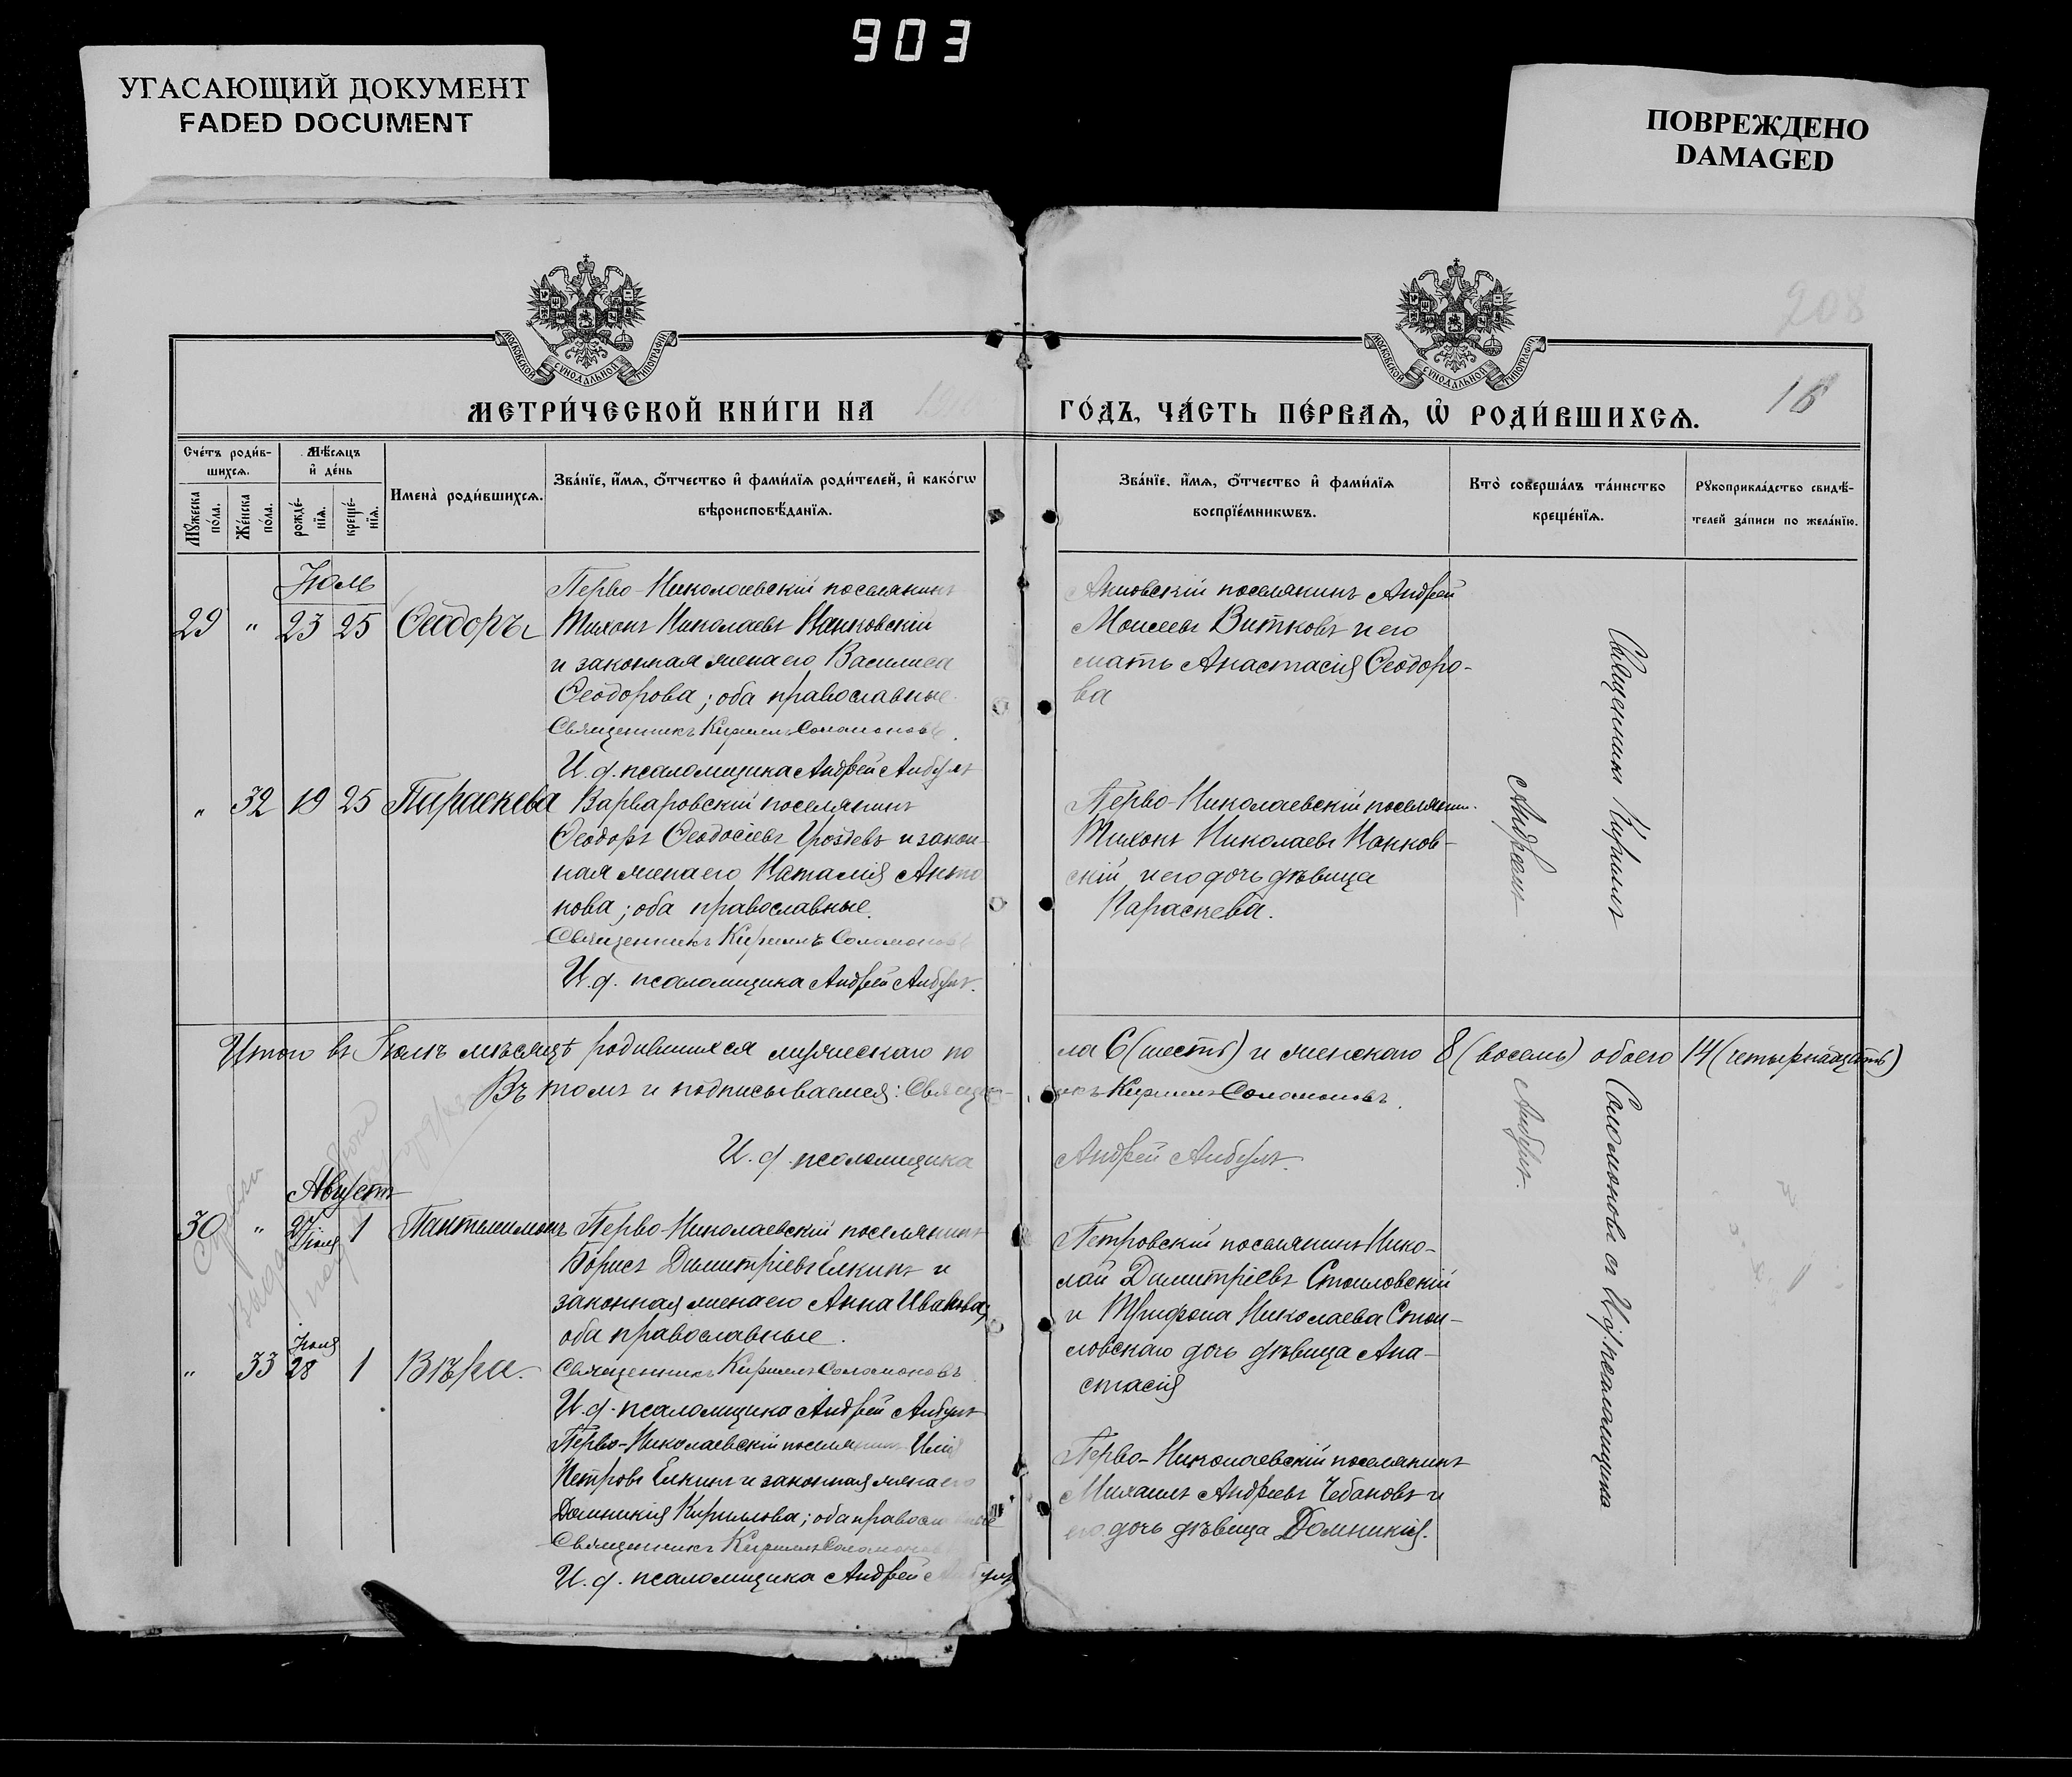 903
УГАСАЮЩИЙ ДОКУМЕНТ
FADED DOCUMENT
ПОВРЕЖДЕНО
DAMAGED
208
16
МОСКОВСКОЙ СѴНОДАЛЬНОЙ ТИПОГРАФІИ
МОСКОВСКОЙ СѴНОДАЛЬНОЙ ТИПОГРАФІИ
МЕТРИ́ЧЕСКОЙ КНИ́ГИ НА
ГО́ДЪ, ЧА́СТЬ ПЕ́РВАѦ, Ѡ҆ РОДИ́ВШИХСѦ.
Сче́тъ роди́в-
шихсѧ.
Мꙋ́жеска по́ла.
Же́нска по́ла.
Мѣ́сѧцъ
и҆ де́нь
рожде́-нїѧ.
креще́-нїѧ.
Имена̀ роди́вшихсѧ.
Зва́нїе, и҆́мѧ, ѻ҆́тчество и҆ фами́лїѧ роди́телей, и҆ како́гѡ
вѣроисповѣ́данїѧ.
Зва́нїе, и҆́мѧ, ѻ҆́тчество и҆ фами́лїѧ
воспрїе́мникѡвъ.
Кто̀ соверша́лъ та́инство
креще́нїѧ.
Рꙋкоприкла́дство свидѣ́-
телей за́писи по жела́нїю.
Іюль
29 " 23 25 Ѳеодоръ
Перво-Николаевскій поселянинъ
Тихонъ Николаевъ Панковскій
и законная жена его Василиса
Ѳеодорова; оба православные.
Священникъ Кириллъ Соломоновъ.
И. д. псаломщика Андрей
поселянинъ Андрей
Моисеевъ Витковъ и его
мать Анастасія Ѳеодоро-
ва
" 32 19 25 Параскева
Варваровскій поселянинъ
Ѳеодоръ Ѳеодосіевъ Гроздевъ и закон-
ная жена его Наталія Анто
нова; оба православные.
Священникъ Кириллъ Соломоновъ
И. д. псаломщика Андрей
Перво-Николаевскій поселянин.
Тихонъ Николаевъ Панков-
скій и его дочь дѣвица
Параскева.
Священникъ Кириллъ
Андреемъ
Итого въ Іюлѣ мѣсяцѣ родившихся мужескаго по
ла 6 (шесть) и женскаго 8 (восемь) обоего 14 (четырнадцать)
Въ томъ и подписываемся: Священ-
никъ Кириллъ Соломоновъ.
И. д. псаломщика
Андрей
Соломоновъ съ И. д. псаломщика
Августъ
30 " 27 Іюля 1 Пантелеимонъ
Перво-Николаевскій поселянинъ
Борисъ Димитріевъ Елкинъ и
законная жена его Анна Иванова;
оба православные.
Священникъ Кириллъ Соломоновъ
И. д. псаломщика Андрей
Петровскій поселянинъ Нико-
лай Димитріевъ Стоиловскій
и Трифона Николаева Стои-
ловскаго дочь дѣвица Ана-
стасія
" 33 Іюля 28 1 Вѣра.
Перво-Николаевскій поселянинъ Илія
Петровъ Елкинъ и законная жена его
Домникія Кириллова; оба православные
Священникъ Кириллъ Соломоновъ
И. д. псаломщика Андрей
Перво-Николаевскій поселянинъ
Михаилъ Андреевъ Чебановъ и
его дочь дѣвица Домникія.